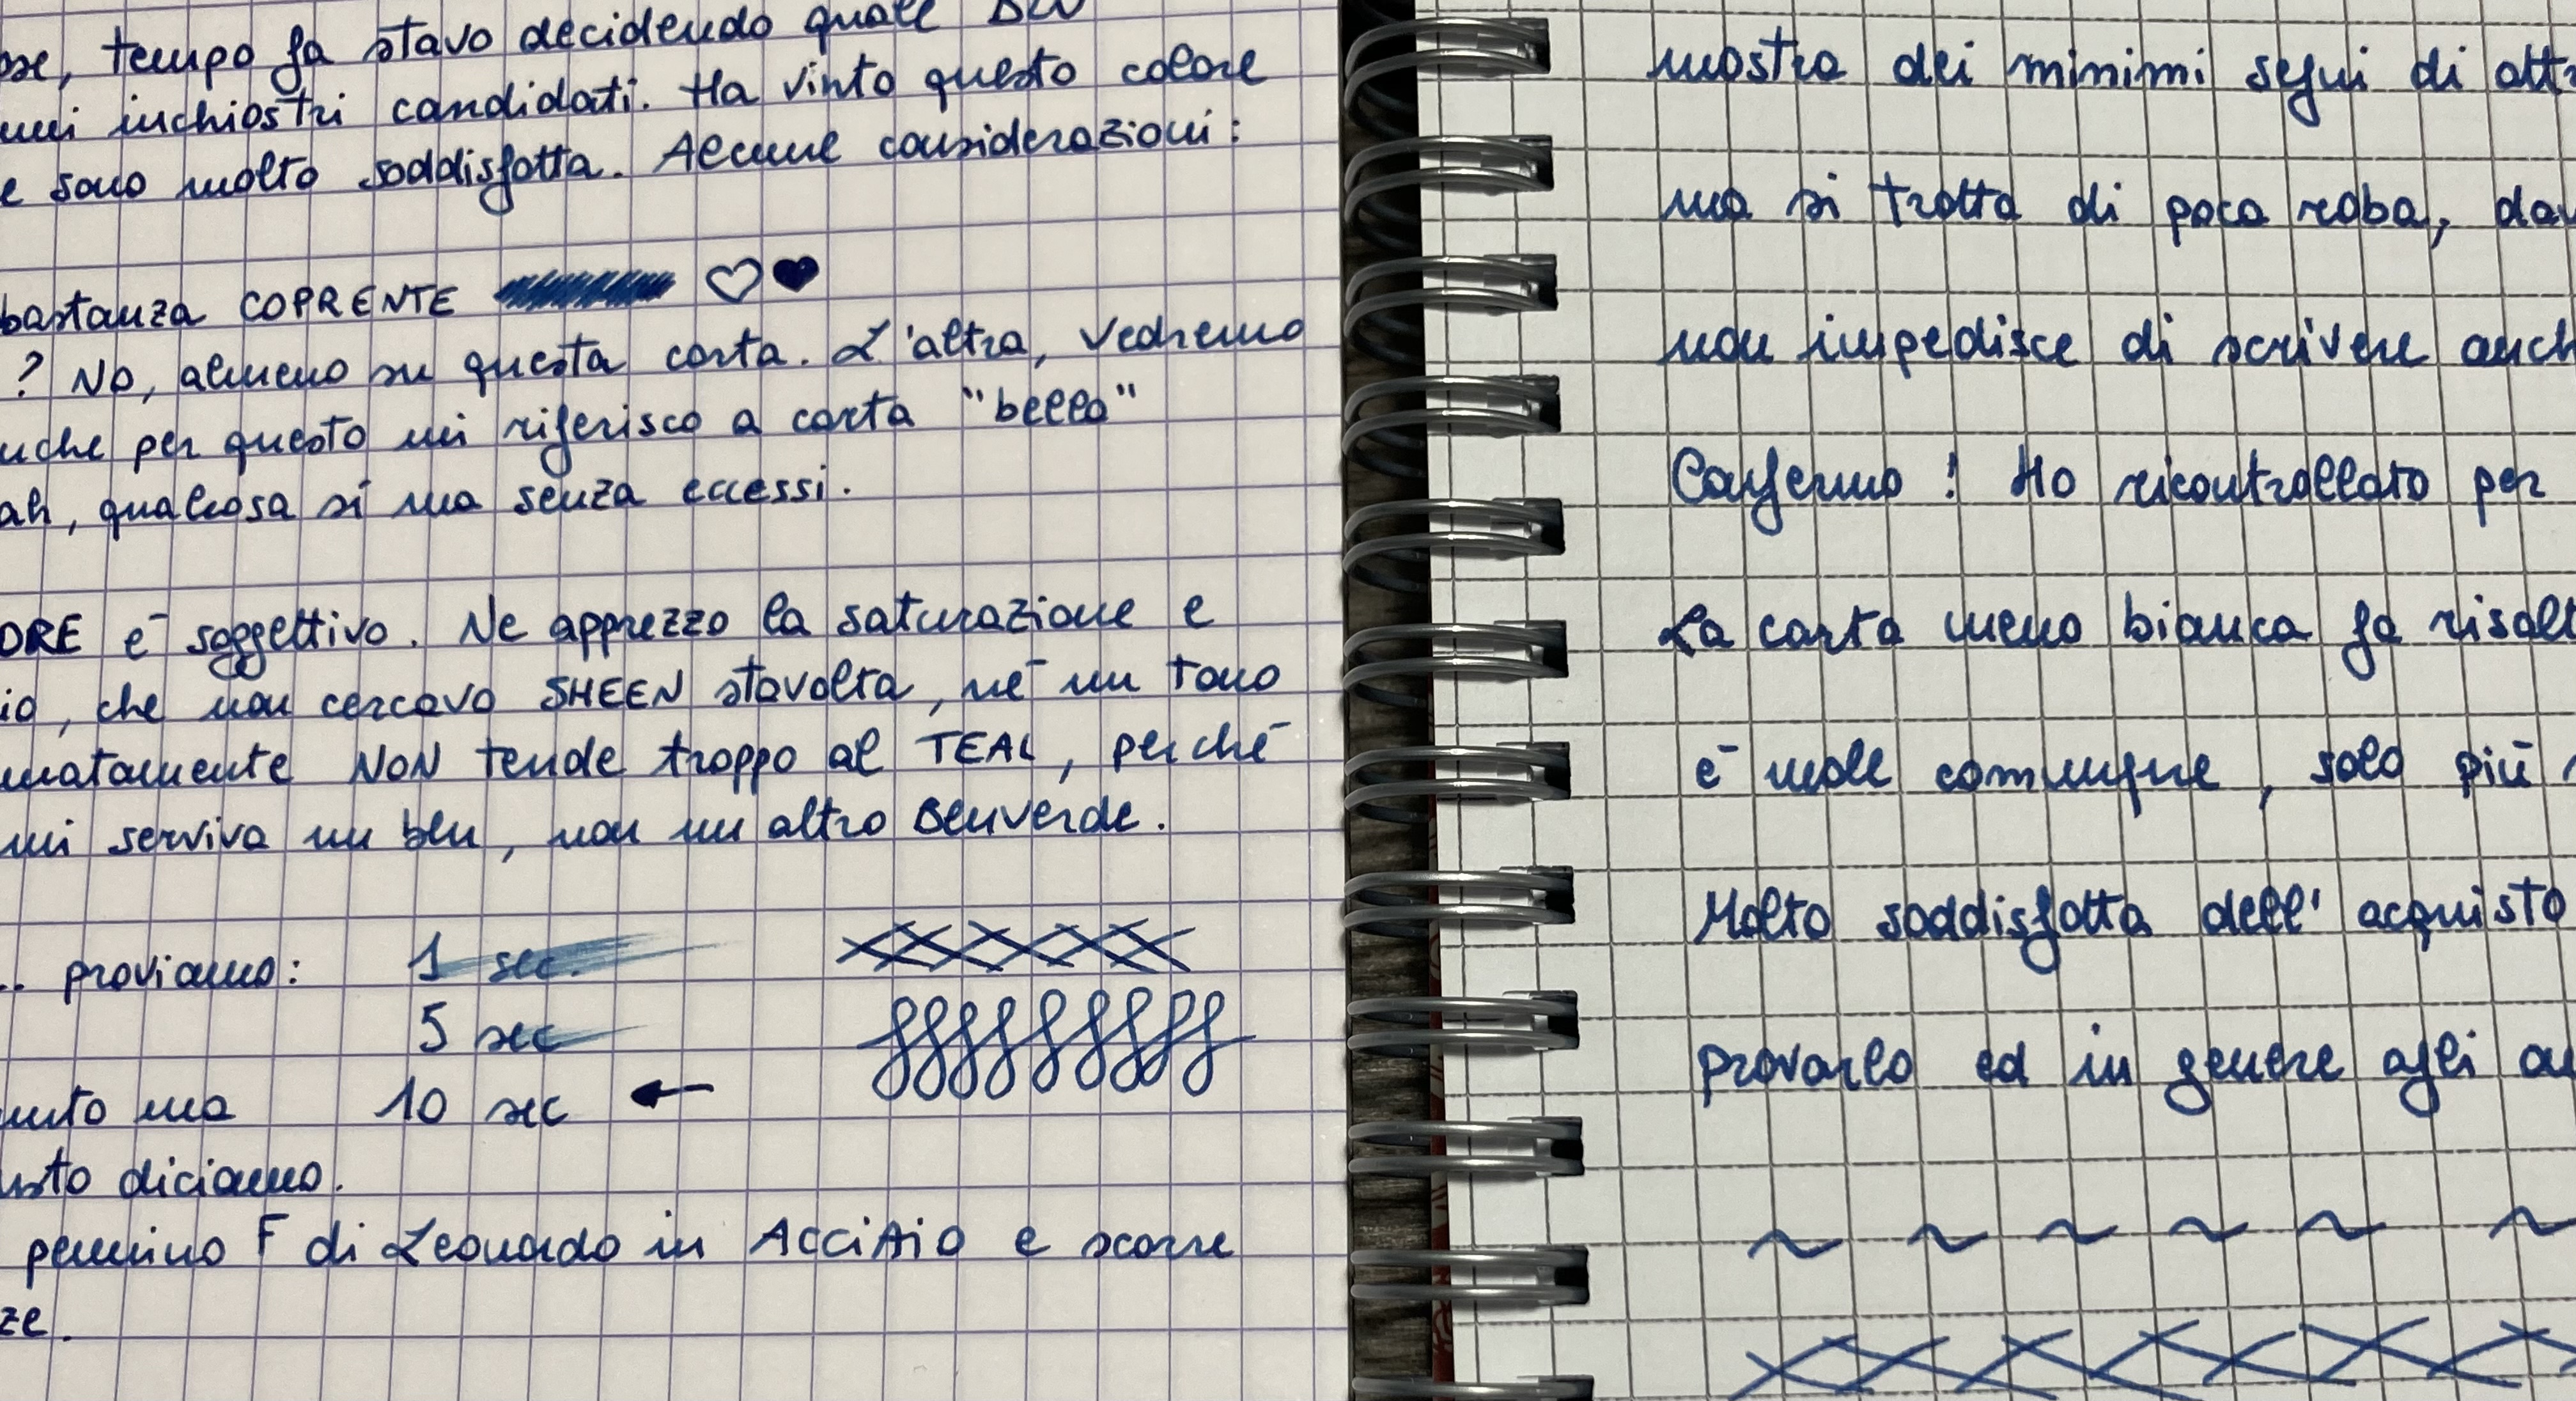 tempo fa stavo decidendo quale BLU
inchiostri candidati. Ha vinto questo colore
e sono molto soddisfatta. Alcune considerazioni:
bastanza COPRENTE
? No, almeno su questa carta. L'altra, vedremo
nche per questo mi riferisco a carta "bella"
ah, qualcosa sì ma senza eccessi.
ORE è soggettivo. Ne apprezzo la saturazione e
io, che non cercavo SHEEN stavolta, né un tono
natamente NON tende troppo al TEAL, perché
mi serviva un blu, non un altro Benverde.
.. proviamo: 1 sec.
5 sec
ma 10 sec
sto diciamo.
pennino F di Leonardo in ACCIAIO e scorre
ze.
mostra dei minimi segni di
ma si tratta di poca roba,
non impedisce di scrivere anch
Confermo! Ho ricontrollato per
La carta meno bianca fa risalt
è comunque, solo più
Molto soddisfatta dell'acquisto
provarlo ed in genere agli